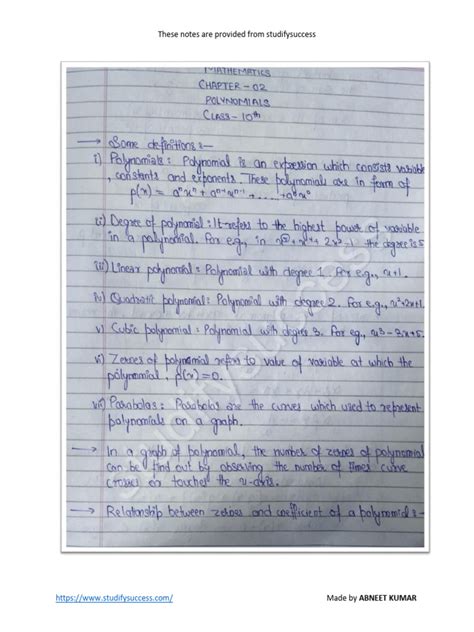 These notes are provided from studifysuccess
MATHEMATICS
CHAPTER - 02
POLYNOMIALS
CLASS - 10th
→ Some definitions :-
i) Polynomials : Polynomial is an expression which consists variable
, constants and exponents. These polynomials are in form of
p(x) = aⁿxⁿ + aⁿ⁻¹xⁿ⁻¹ + ..... + a⁰x⁰
ii) Degree of polynomial : It refers to the highest power of variable
in a polynomial. For e.g., in x⁵ + x⁴ + 2x³ - 1 the degree is 5
iii) Linear polynomial : Polynomial with degree 1. For e.g., x+1.
iv) Quadratic polynomial : Polynomial with degree 2. For e.g., x²+2x+1.
v) Cubic polynomial : Polynomial with degree 3. For eg., x³ - 3x + 5.
vi) Zeroes of polynomial refers to value of variable at which the
polynomial, p(x) = 0.
vii) Parabolas : Parabolas are the curves which used to represent
polynomials on a graph.
→ In a graph of polynomial, the number of zeroes of polynomial
can be find out by observing the number of times curve
crosses or touches the x-axis.
→ Relationship between zeroes and coefficient of a polynomial :-
studifysuccess
https://www.studifysuccess.com/
Made by ABNEET KUMAR